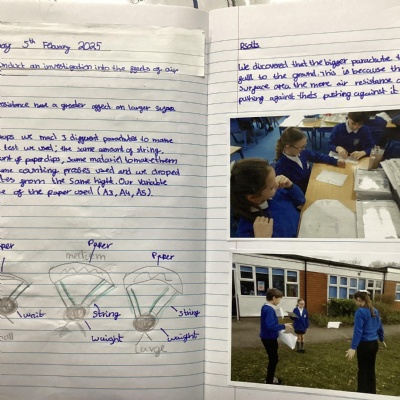 day 5th Febuary 2025
conduct an investigation into the effects of air
resistance has a greater affect on larger
we mad 3 diggerent parachutes to make
test we used, the same amount of string,
of paperclips, same material to make them
same counting prosses used and we droped
from the same hight. Our variable
of the paper used (A3, A4, A5).
Paper
medium
Paper
string
string
waight
waight
large
Rsolts
We discovered that the bigger parachute t
fall to the ground. This is because th
surgace area the more air resistance
pushing against thats pushing against it